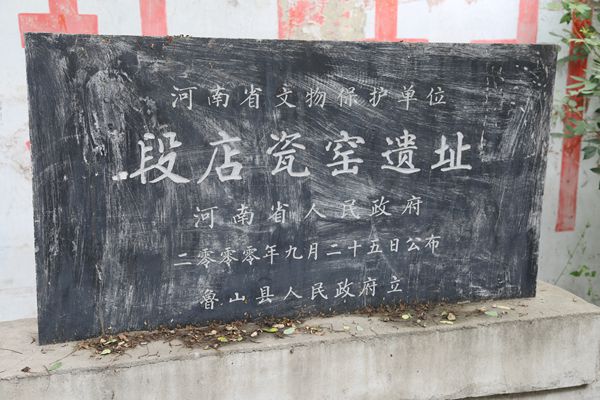 河南省文物保护单位
段店瓷窑遗址
河南省人民政府
二零零零年九月二十五日公布
鲁山县人民政府立